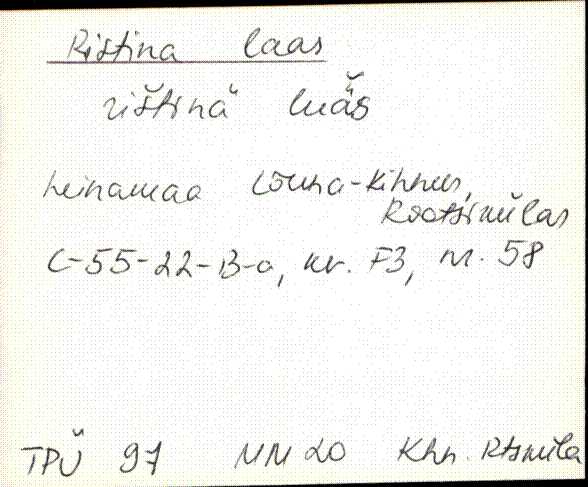 Ristina laas
rištinä luäs̆
heinamaa Lõuna-Kihnus,
Rootsikülas
C-55-22-B-a, kv. F3, nr. 58
TPÜ 97 MM 20 Khn. Rtsküla